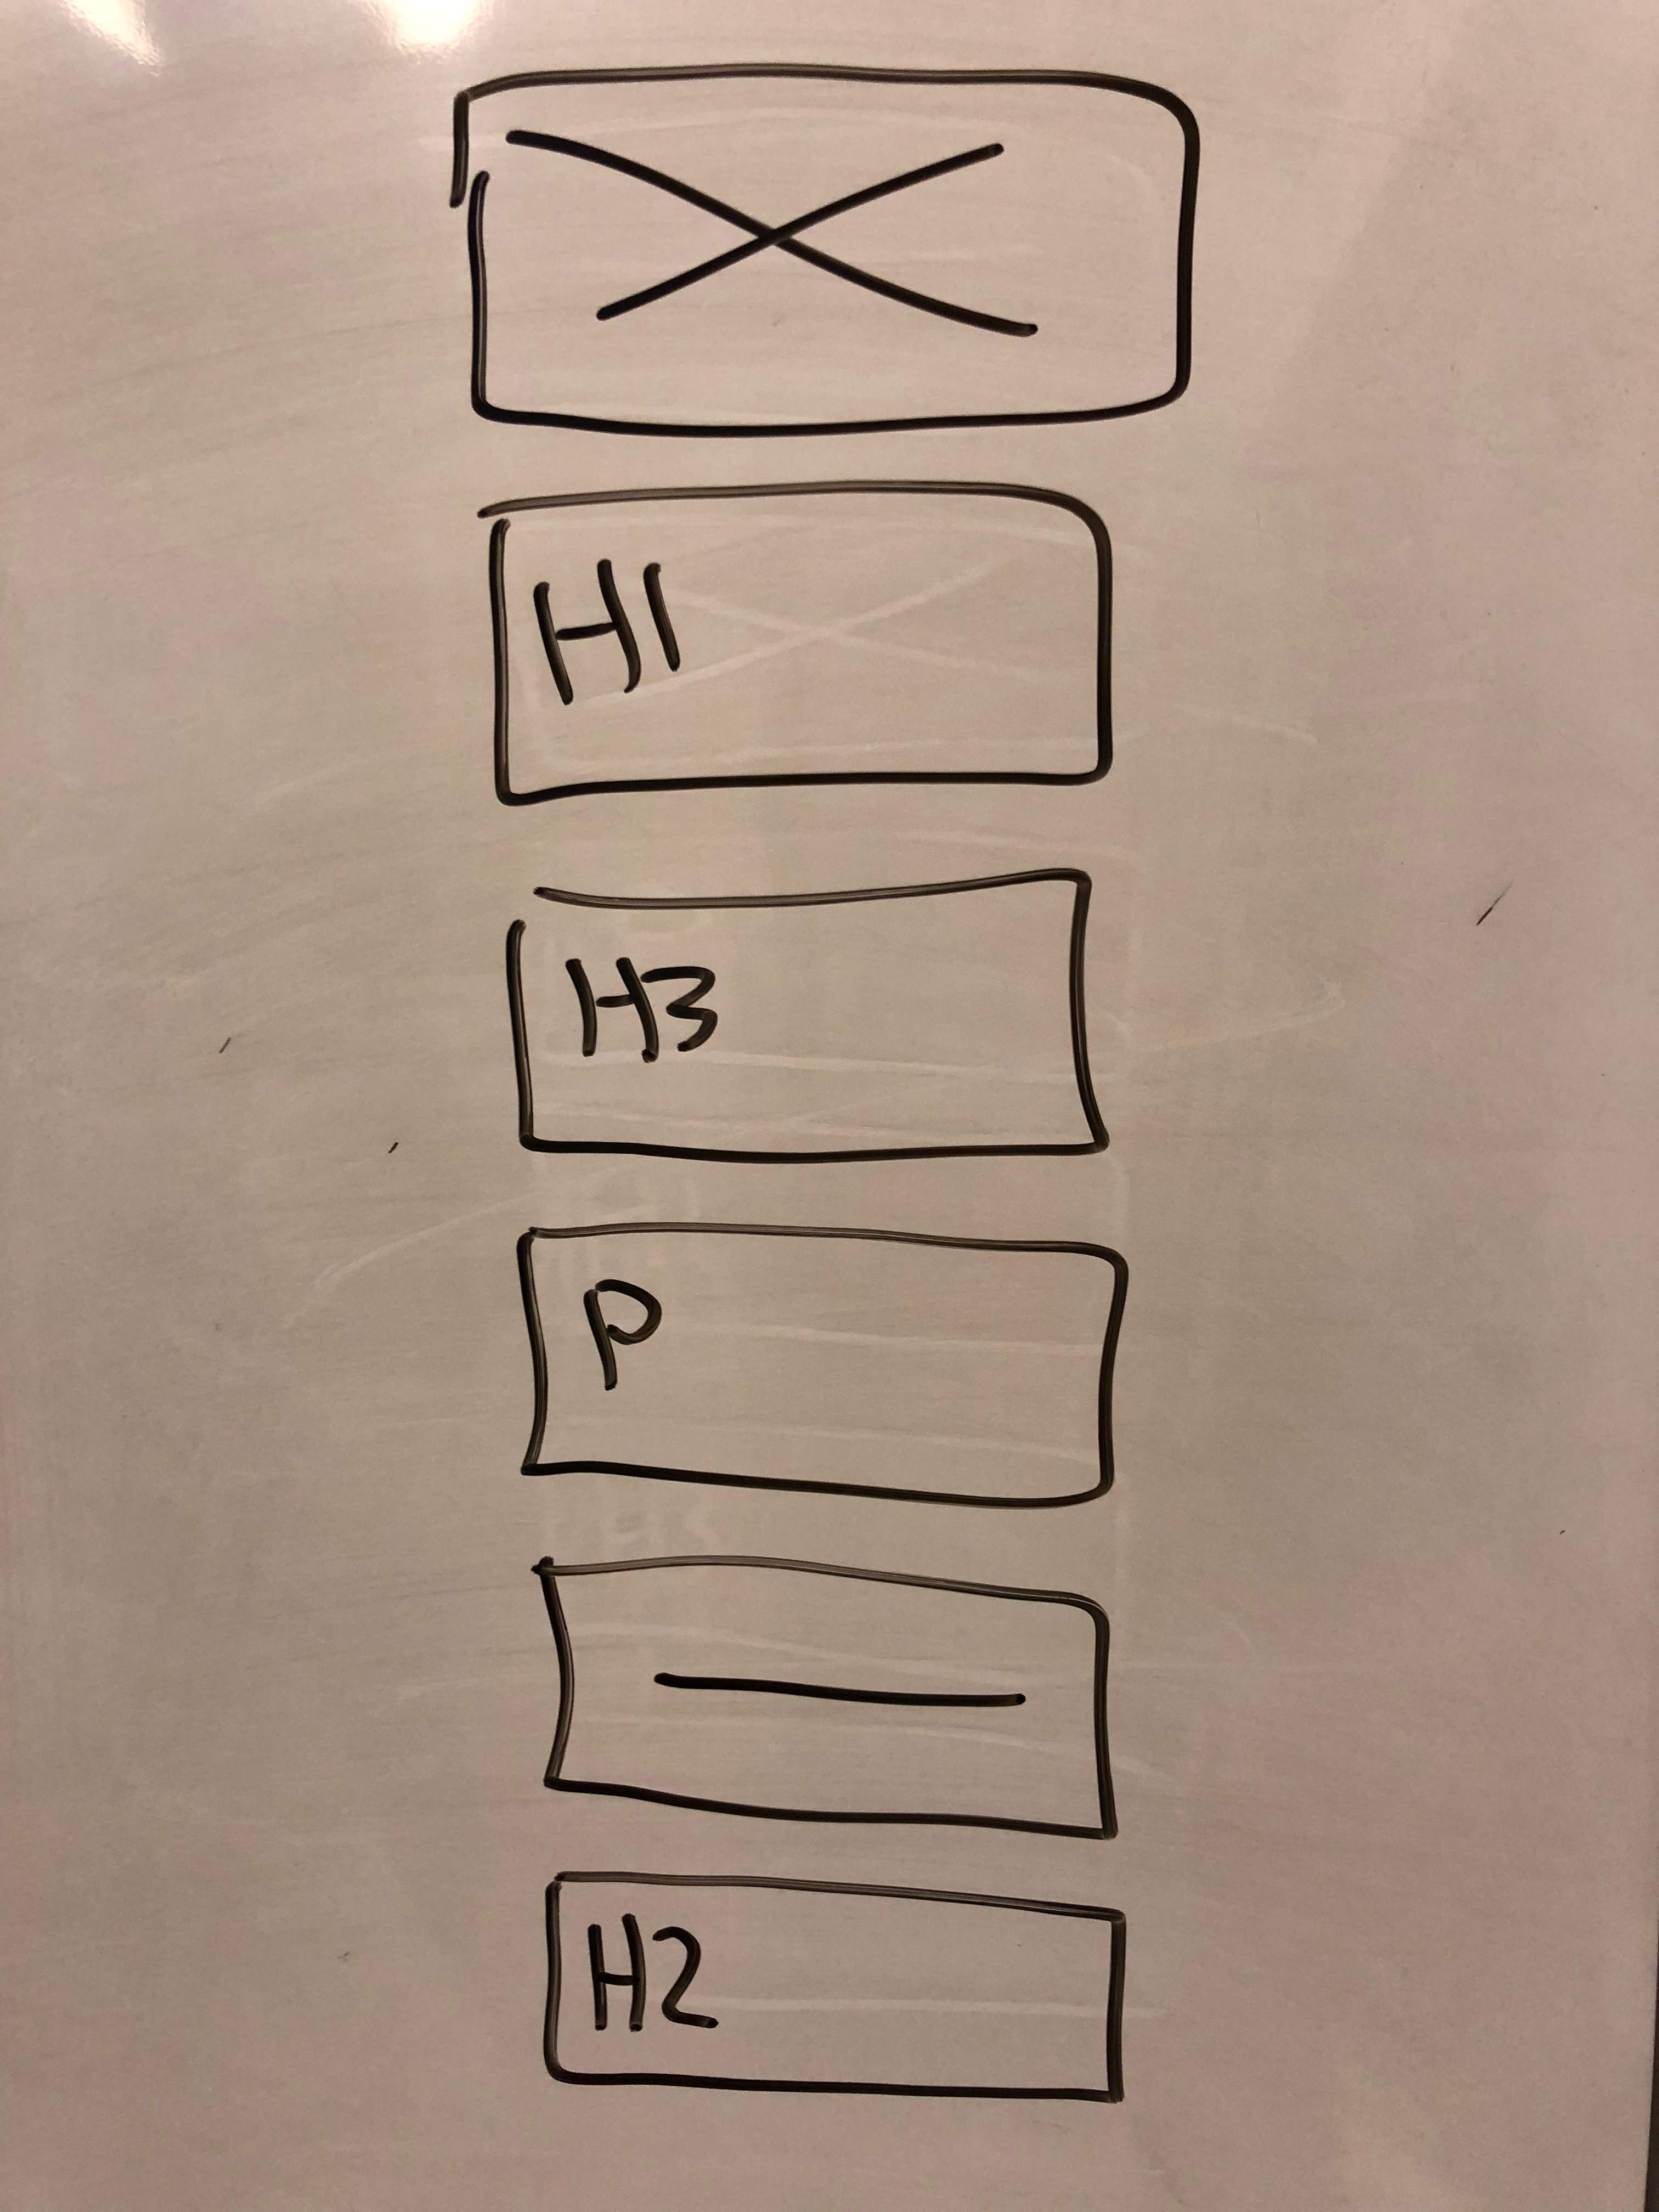 H1
H3
P
H2